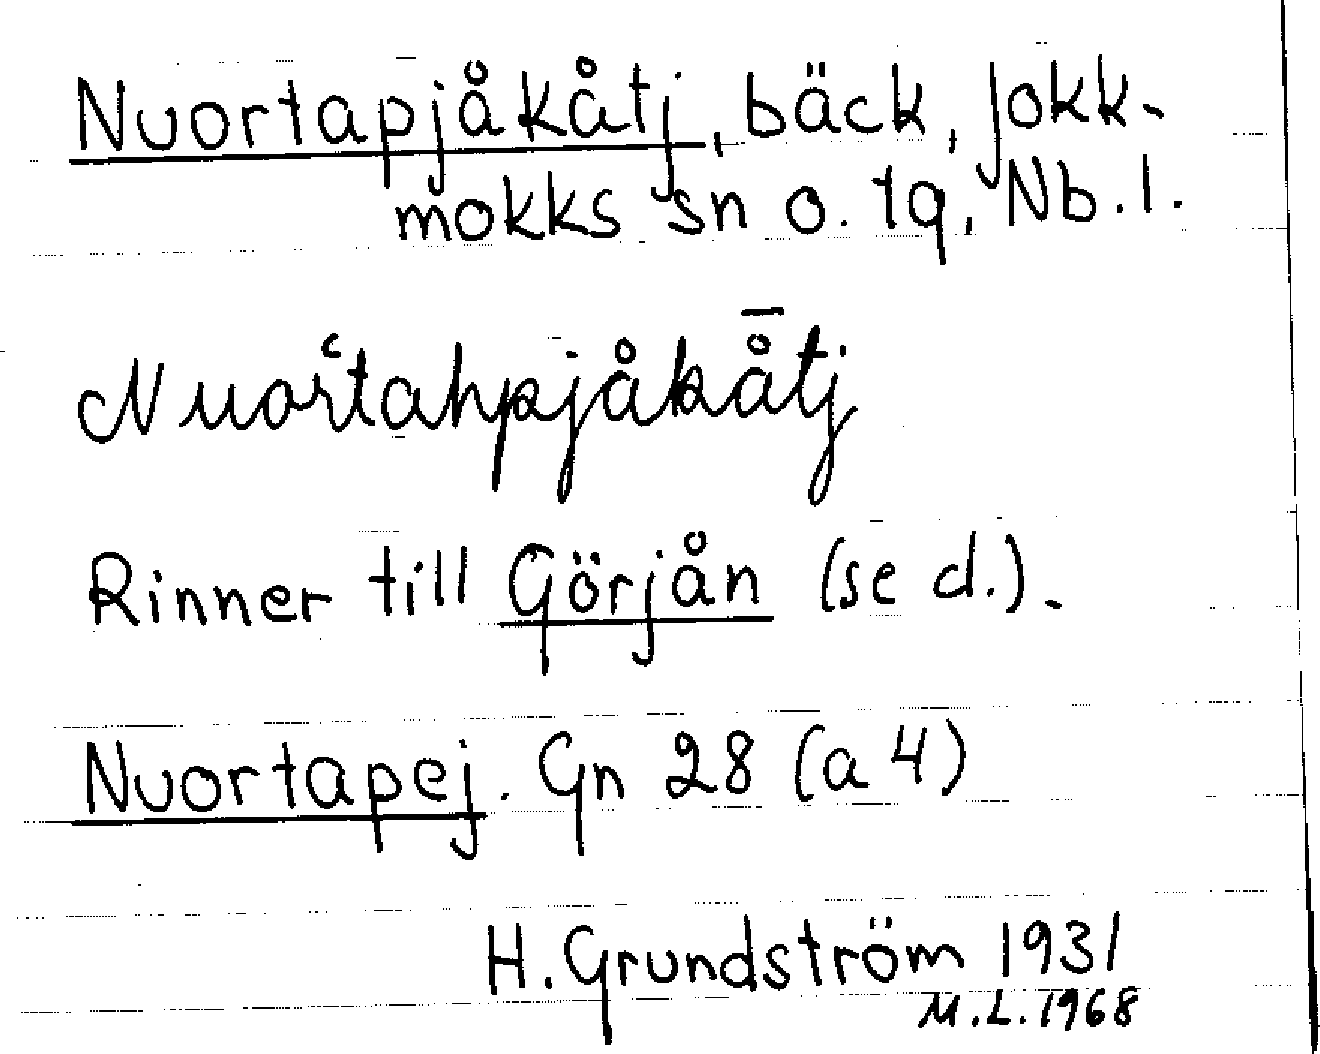 Nuortapjåkåtj, bäck, Jokk-
mokks sn o. tg, Nb. l.
Nuorʿtahpjåkå̄tj
Rinner till Görjån (se d.).
Nuortapej. Gn 28 (a 4)
H. Grundström 1931
M.L. 1968